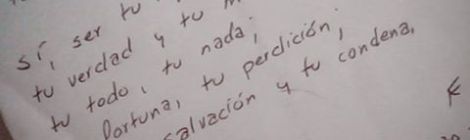 sí, ser tu
tu verdad y tu m
tu todo, tu nada;
fortuna, tu perdición;
salvación y tu condena,